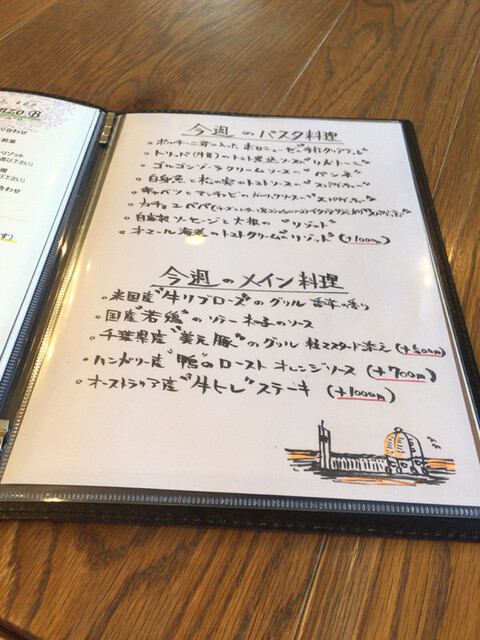 nzo B
今週のパスタ料理
。ポルチーニ茸の入ったボロニェーゼ
。トリッパ(牛胃)のトマト煮込ソース"リガトーニ"
。ゴルゴンゾーラクリームソース "ペンネ"
。白身魚と松の実のトマトソース"スパゲティー"
。キャベツとアンチョビの "スパゲティー"
。カチョエペペ
。自家製ソーセージと大根の "リゾット"
。オマール海老のトマトクリーム"リゾット" (+100円)
今週のメイン料理
。米国産"牛リブロース"のグリル 香草の香り
。国産"若鶏"のソテー きのこのソース
。千葉県産"美元豚"のグリル 粒マスタード添え (+500円)
。ハンガリー産"鴨"のロースト オレンジソース (+700円)
。オーストラリア産"牛ヒレ"ステーキ (+1000円)